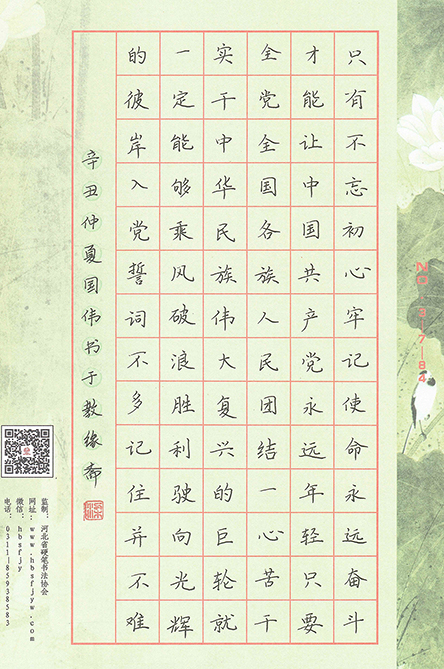 只有不忘初心牢记使命永远奋斗
才能让中国共产党永远年轻只要
全党全国各族人民团结一心苦干
实干中华民族伟大复兴的巨轮就
一定能够乘风破浪胜利驶向光辉
的彼岸入党誓词不多记住并不难
辛丑仲夏国伟书于教缘斋
NO 3-7-84
监制：河北省硬笔书法协会
网址：www.hbsfjyw.com
微信：hbsfjy
电话：0311-85938583